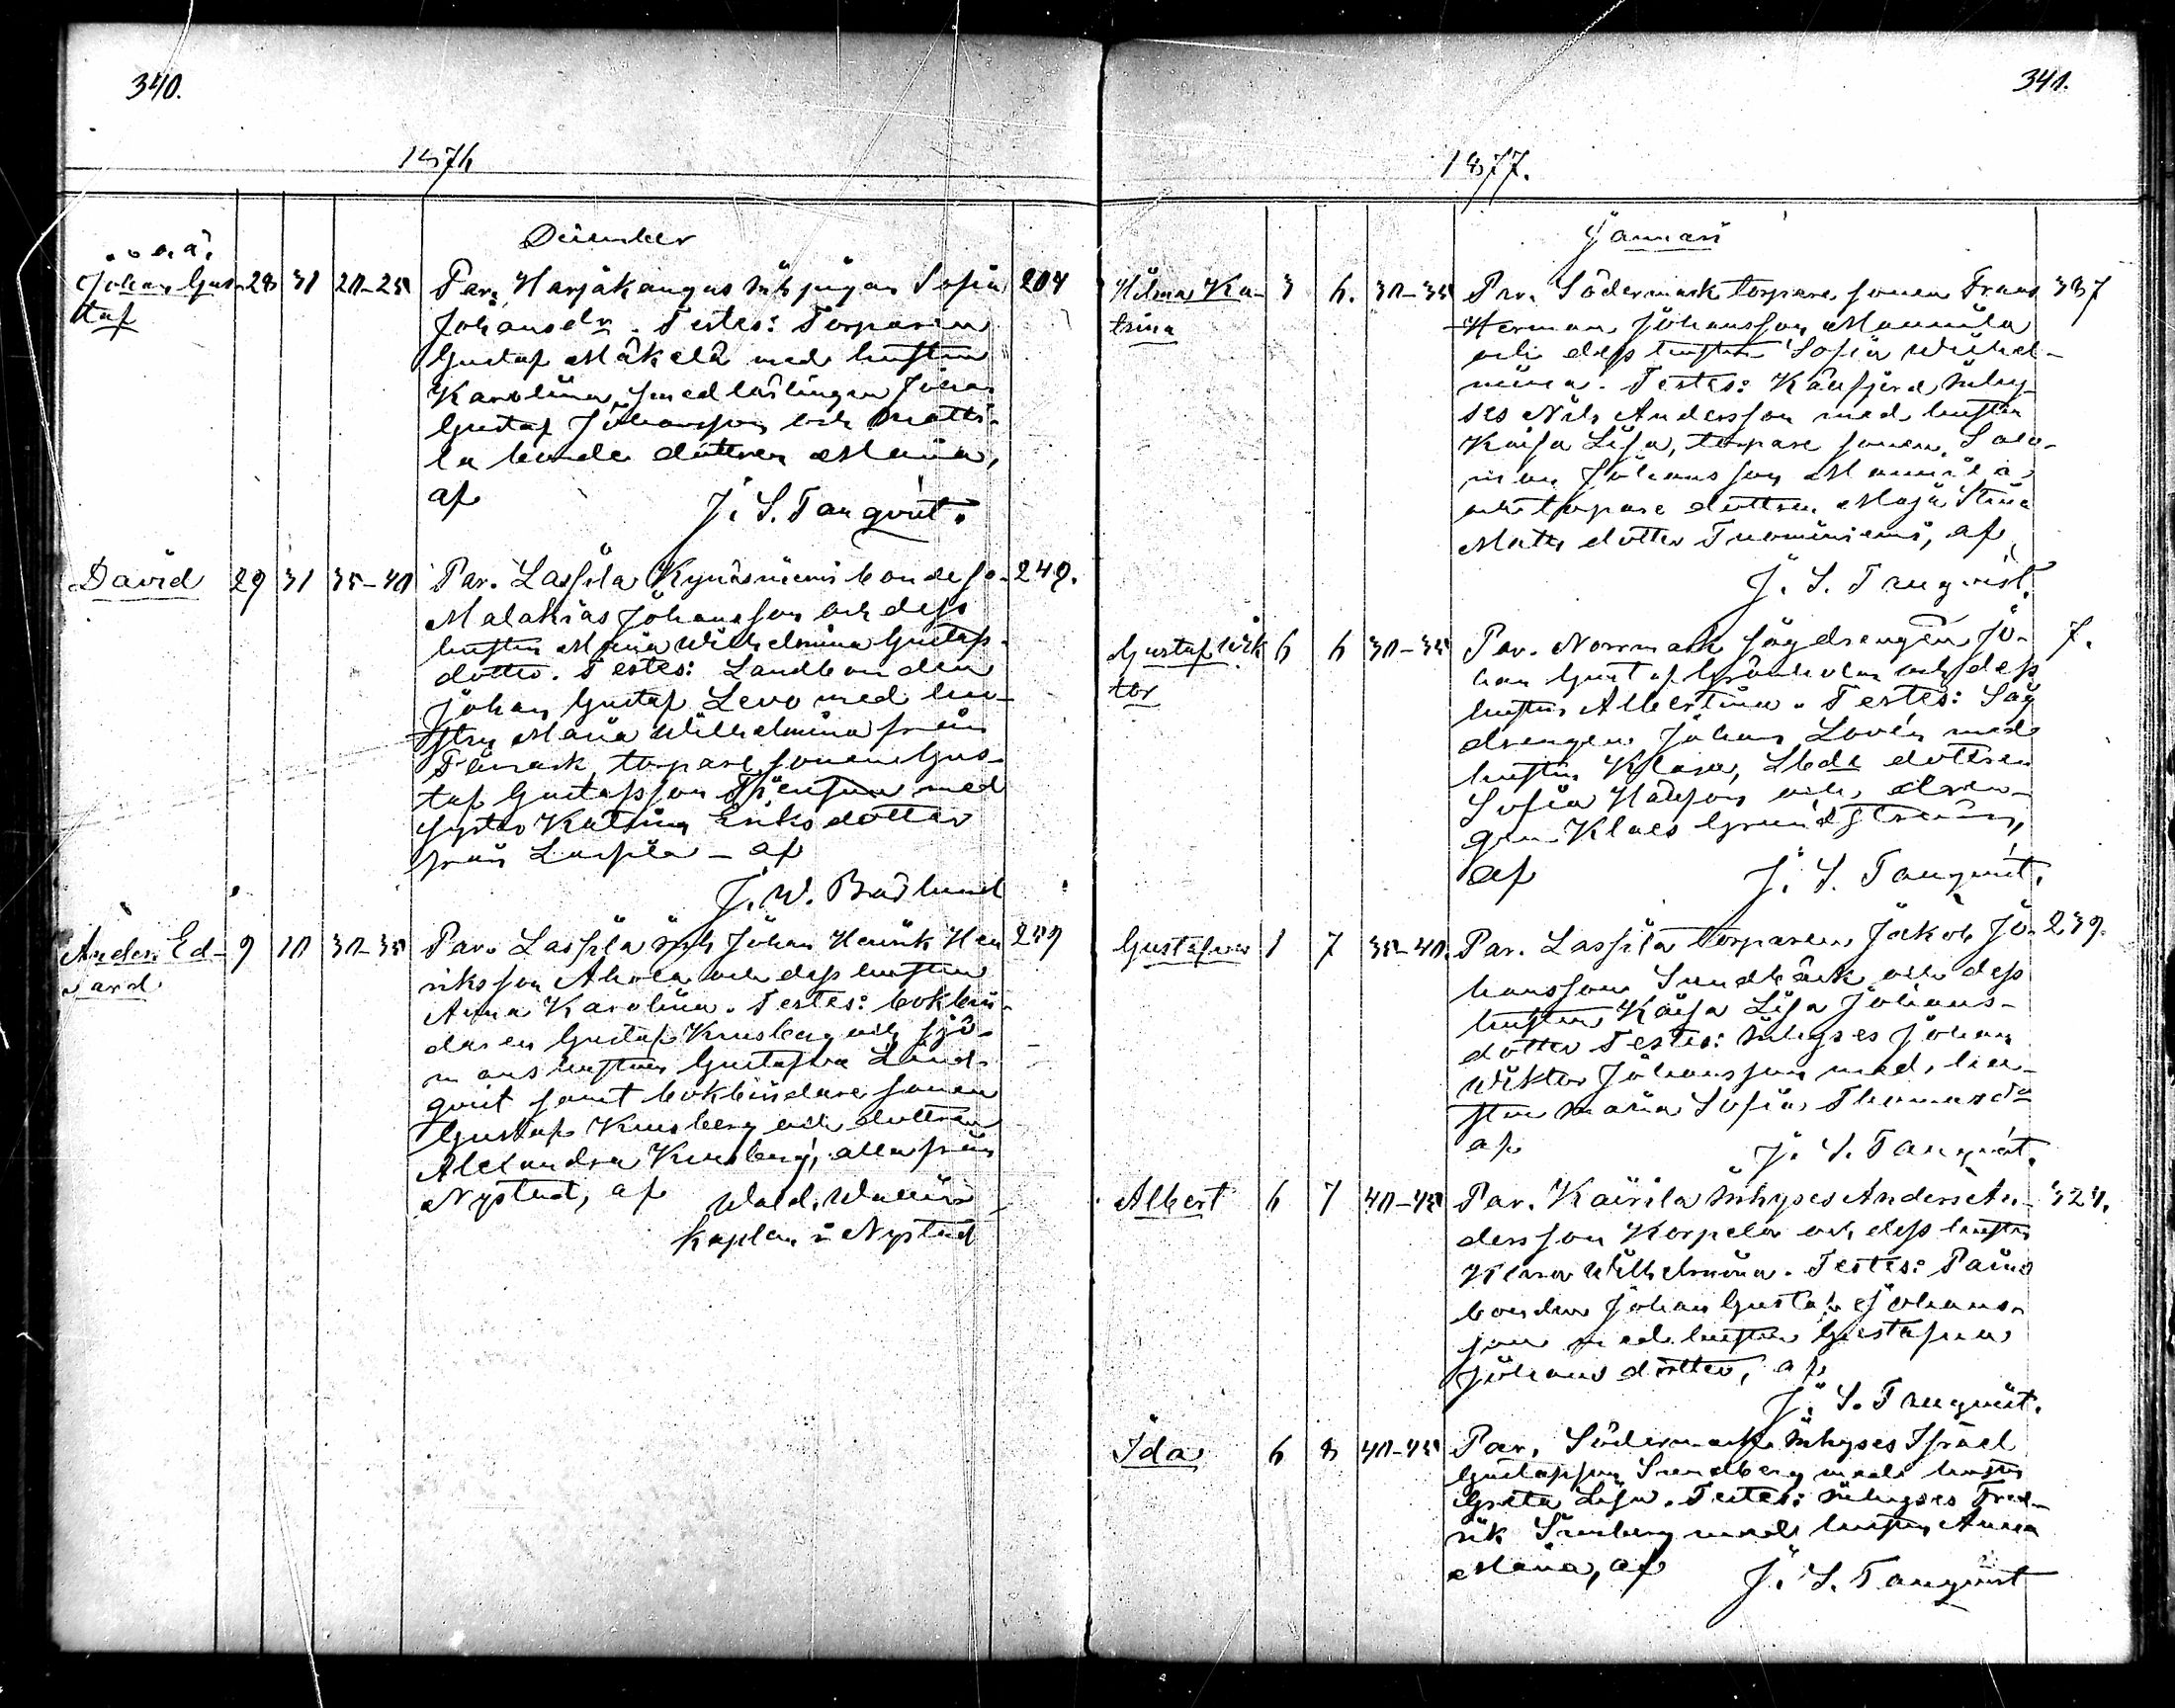 340.
1876
December
o. ä.
Johan Gus- 28 31 20-25 Par. Harjakangas Inh. pigan Sofia 204
taf
Johansdr. Testes: Torparen
Gustaf Mäkelä med hustrun
Karolina, smedlärlingen Johan
Gustaf Johansson och Matti-
la bonde dottren Maria,
af
J. S. Tanqvist.
David 29 31 35-40 Par. Lassila Kynäsniemi bondeso. 249.
Malakias Johansson och dess
hustru Maria Wilhelmina Gustafs-
dotter. Testes: Landbonden
Johan Gustaf Levo med hu-
stru Maria Wilhelmina från
torpare sonen Gus-
taf Gustafsson med
syster Katrina Eriksdotter
från Lassila - af
J. W. Brädlund
Anders Ed- 9 10 30-35 Par. Lassila Inh Johan Henrik Hen 249
vard
riksson Ahola och dess hustru
Anna Karolina. Testes: bokbin-
daren Gustaf Krusberg och sjö-
mans hustrun Gustafva Lind-
qvist samt bokbindare sonen
Gustaf Krusberg och dottren
Alexandra Krusberg, alla från
Nystad, af Wald. Wallin
Kaplan i Nystad
341.
1877.
Januari
Hilma Ka- 3 6. 30-35 Par. Södermark torpare sonen Frans 337
trina
Herman Johansson Mannila
och dess hustru Sofia Wilhel-
mina. Testes: Inhy-
ses Nils Andersson med hustru
Kaisa Lisa, torpare sonen Salo-
mon Johansson Mannila
och torpare dottren Maja Stina
Matts dotter Tuominiemi, af
J. S. Tanqvist.
Gustaf Wik 6 6 30-35 Par. Norrmark sågdrengen Jo- 7.
tor
han Gustaf Grönholm och dess
hustru Albertina. Testes: Såg
drengen Johan Lovén med
hustru Klara, Lbde dottren
Sofia och dren-
gen Klaes Grundström,
af
J. S. Tanqvist.
Gustafva 1 7 35-40. Par. Lassila torparen Jakob Jo- 239.
hansson Sundbäck och dess
hustru Kaisa Lisa Johans-
dotter Testes: Inhyses Johan
Wiktor Johansson med hu-
stru Maria Sofia Thomasdr
af
J. S. Tanqvist.
Albert 6 7 40-45 Par. Kairila Inhyses Anders An- 324.
dersson Korpela och dess hustru
Klara Wilhelmina. Testes:
bonden Johan Gustaf Johans-
son med hustru Gustafva
Johans dotter, af
J. S. Tanqvist.
Ida 6 8 40-45 Par. Södermark Inhyses Israel
Gustafsson Sundberg med hustru
Greta Lisa. Testes: Inhyses Fred-
rik med hustru Anna
Maria, af
J. S. Tanqvist